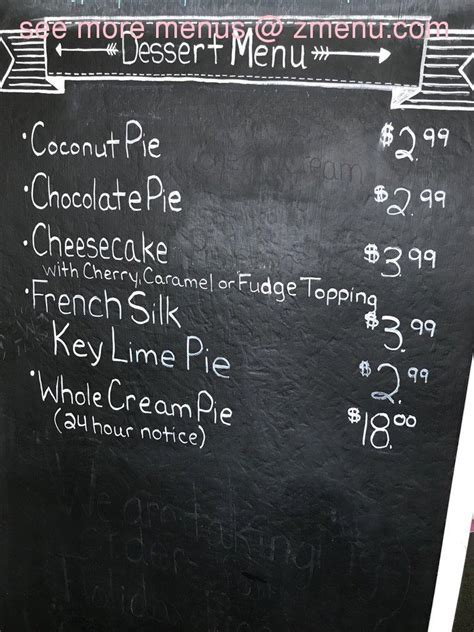 see more menus @ zmenu.com
Dessert Menu
·Coconut Pie $2.99
·Chocolate Pie $2.99
·Cheesecake $3.99
with Cherry, Caramel or Fudge Topping
·French Silk $3.99
Key Lime Pie $2.99
·Whole Cream Pie $18.00
(24 hour notice)
We are taking
Holiday